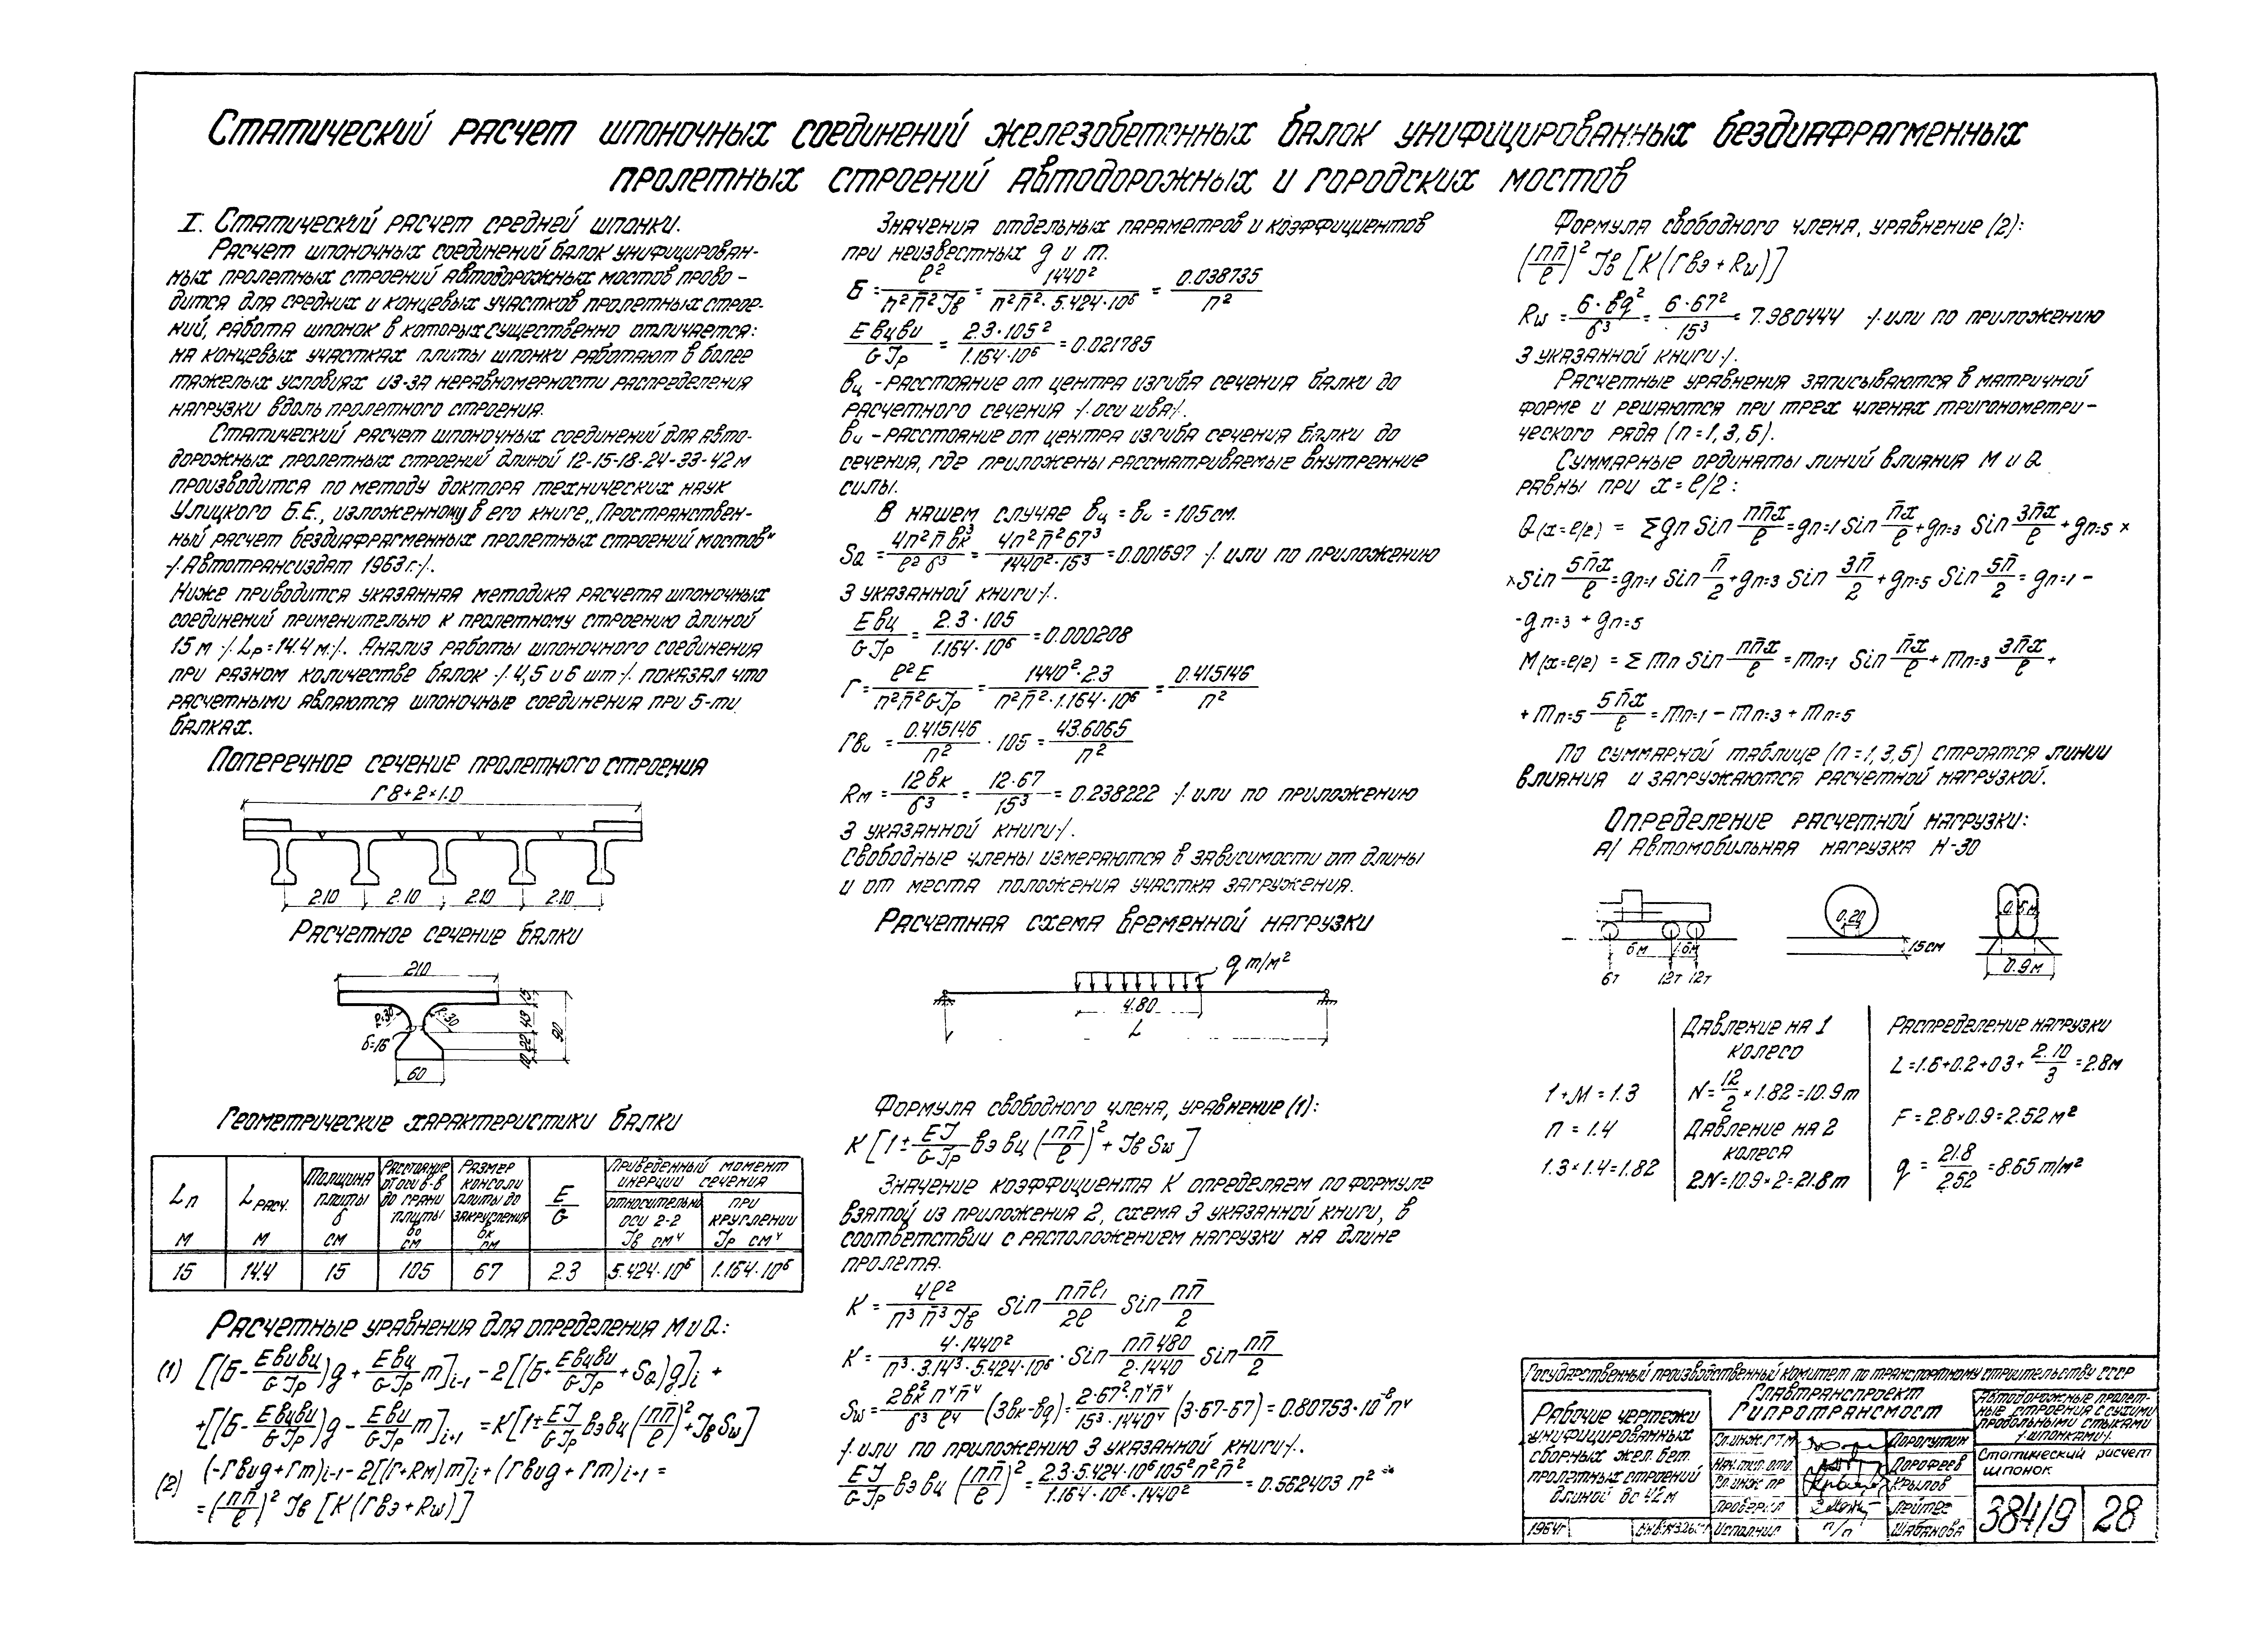 Статический расчет шпоночных соединений железобетонных балок унифицированных бездиафрагменных
пролетных строений автодорожных и городских мостов
I. Статический расчет средней шпонки.
Расчет шпоночных соединений балок унифицирован-
ных пролетных строений автодорожных мостов прово-
дится для средних и концевых участков пролетных строе-
ний, работа шпонок в которых существенно отличается:
на концевых участках плиты шпонки работают в более
тяжелых условиях из-за неравномерности распределения
нагрузки вдоль пролетного строения.
Статический расчет шпоночных соединений для авто-
дорожных пролетных строений длиной 12-15-18-24-33-42 м
производится по методу доктора технических наук
Улицкого Б.Е., изложенному в его книге „Пространствен-
ный расчет бездиафрагменных пролетных строений мостов"
/Автотрансиздат 1963 г./.
Ниже приводится указанная методика расчета шпоночных
соединений применительно к пролетному строению длиной
15 м /Lр=14.4 м/. Анализ работы шпоночного соединения
при разном количестве балок /4,5 и 6 шт/ показал что
расчетными являются шпоночные соединения при 5-ти
балках.
Поперечное сечение пролетного строения
Г8+2×1.0
2.10 2.10 2.10 2.10
Расчетное сечение балки
210
R=30 R=30
δ=16
15 43 22 10 90
60
Геометрические характеристики балки
Lп м | Lрасч. м | Толщина плиты δ см | Расстояние от оси в-в до грани плиты bо см | Размер консоли плиты до закругления bк см | E/G | Приведенный момент инерции сечения: относительно оси 2-2 Jв см⁴ | при кручении Jр см⁴
15 | 14.4 | 15 | 105 | 67 | 2.3 | 5.424·10⁶ | 1.164·10⁶
Расчетные уравнения для определения M и Q:
(1) [(Б - Eвивц/GJр)g + Eвц/GJр m]i-1 - 2[(Б + Eвцви/GJр + SQ)g]i +
+[(Б - Eвцви/GJр)g - Eви/GJр m]i+1 = K[1 ± EJ/GJр вэвц(nπ/ℓ)² + JвSω]
(2) (-Гвиg + Гm)i-1 - 2[(Г+Rм)m]i + (Гвиg + Гm)i+1 =
= (nπ/ℓ)² Jв [K(Гвэ + Rω)]
Значения отдельных параметров и коэффициентов
при неизвестных g и m.
Б = ℓ²/n²π²Jв = 1440²/n²π²·5.424·10⁶ = 0.038735/n²
Eвцви/GJр = 2.3·105²/1.164·10⁶ = 0.021785
вц - расстояние от центра изгиба сечения балки до
расчетного сечения /оси шва/.
ви - расстояние от центра изгиба сечения балки до
сечения, где приложены рассматриваемые внутренние
силы.
В нашем случае вц = ви = 105 см.
SQ = 4n²π²вк³/ℓ²б³ = 4n²π²67³/1440²·15³ = 0.001697 /или по приложению
3 указанной книги/.
Eвц/GJр = 2.3·105/1.164·10⁶ = 0.000208
Г = ℓ²E/n²π²GJр = 1440²·2.3/n²π²·1.164·10⁶ = 0.415146/n²
Гви = 0.415146/n² · 105 = 43.6065/n²
Rм = 12вк/б³ = 12·67/15³ = 0.238222 /или по приложению
3 указанной книги/.
Свободные члены измеряются в зависимости от длины
и от места положения участка загружения.
Расчетная схема временной нагрузки
q т/м²
4.80
L
Формула свободного члена, уравнение (1):
K[1 ± EJ/GJр вэ вц (nπ/ℓ)² + Jв Sω]
Значение коэффициента K определяем по формуле
взятой из приложения 2, схема 3 указанной книги, в
соответствии с расположением нагрузки на длине
пролета.
K = 4ℓ²/n³π³Jв Sin nπℓ₁/2ℓ Sin nπ/2
K = 4·1440²/n³·3.14³·5.424·10⁶ · Sin nπ480/2·1440 Sin nπ/2
Sω = 2вк²n⁴π⁴/б³ℓ⁴ (3вк-вq) = 2·67²·n⁴π⁴/15³·1440⁴ (3·67-67) = 0.80753·10⁻⁸n⁴
/или по приложению 3 указанной книги/.
EJ/GJр вэ вц (nπ/ℓ)² = 2.3·5.424·10⁶105²n²π²/1.164·10⁶·1440² = 0.562403 n²
Формула свободного члена, уравнение (2):
(nπ/ℓ)² Jв [K(Гвэ + Rω)]
Rω = 6·вq²/б³ = 6·67²/15³ = 7.980444 /или по приложению
3 указанной книги/.
Расчетные уравнения записываются в матричной
форме и решаются при трех членах тригонометри-
ческого ряда (n=1,3,5).
Суммарные ординаты линий влияния M и Q
равны при x=ℓ/2:
Q(x=ℓ/2) = Σgn Sin nπx/ℓ = gn=1 Sin πx/ℓ + gn=3 Sin 3πx/ℓ + gn=5 ×
×Sin 5πx/ℓ = gn=1 Sin π/2 + gn=3 Sin 3π/2 + gn=5 Sin 5π/2 = gn=1 -
-gn=3 + gn=5
M(x=ℓ/2) = Σmn Sin nπx/ℓ = mn=1 Sin πx/ℓ + mn=3 3πx/ℓ +
+ mn=5 5πx/ℓ = mn=1 - mn=3 + mn=5
По суммарной таблице (n=1,3,5) строятся линии
влияния и загружаются расчетной нагрузкой.
Определение расчетной нагрузки:
А/ Автомобильная нагрузка Н-30
6м 1.6м
6т 12т 12т
0.20
15 см
0.6м
0.9 м
Давление на 1
колесо
Распределение нагрузки
L = 1.6+0.2+0.3+2.10/3 = 2.8м
1+М = 1.3
N = 12/2 × 1.82 = 10.9 т
F = 2.8×0.9 = 2.52 м²
n = 1.4
Давление на 2
колеса
1.3×1.4 = 1.82
2N = 10.9×2 = 21.8 т
q = 21.8/2.52 = 8.65 т/м²
Государственный производственный комитет по транспортному строительству СССР
Главтранспроект
Гипротрансмост
Рабочие чертежи
унифицированных
сборных жел.бет.
пролетных строений
длиной до 42 м
Автодорожные пролет-
ные строения с сухими
продольными стыками
/шпонками/.
Гл.инж.ГТМ
Нач.тип.отд. Дорофеев
Гл.инж.пр Крылов
Проверил Лейтес
Исполнил п/п Шабанова
Статический расчет
шпонок
1964г
384/9 28